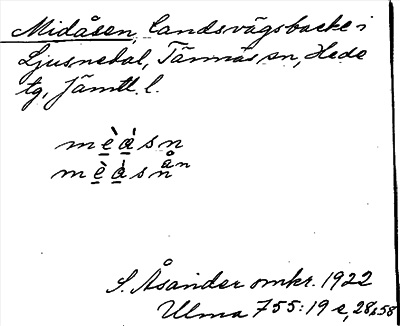 Midåsen, landsvägsbacke i
Ljusnedal, Tännäs sn, Hede
tg, Jämtl. l.
mèásn
mèásnån
S. Åsander omkr. 1922
Ulma 755:19 e, 28, 58